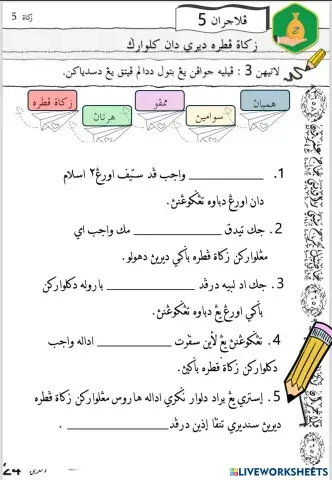 زكاة 5
ڤلاجرن 5
زكاة فطره ديري دان كلوارݢ
لاتيهن 3 : ڤيليه جواڤن يڠ بتول ددالم ڤيتق يڠ دسدياكن.
زكاة فطره
هرتاڽ
ممڤو
سوامين
همبان
1. ____________ واجب ڤد ستيڤ اورڠ٢ اسلام
دان اورڠ دباوه تڠݢوڠنڽ.
2. جك تيدق ____________ مك واجب اي
مڠلواركن زكاة فطره باݢي ديريڽ دهولو.
3. جك اد لبيه درڤد ____________ باروله دكلواركن
باݢي اورڠ يڠ دباوه تڠݢوڠنڽ.
4. تڠݢوڠنڽ يڠ لاٴين سڤرت ____________ اداله واجب
دكلواركن زكاة فطره باݢيڽ.
5. إستري يڠ براد دلوار نݢري اداله هاروس مڠلواركن زكاة فطره
ديريڽ سنديري تنڤا إذين درڤد ____________ .
LIVEWORKSHEETS